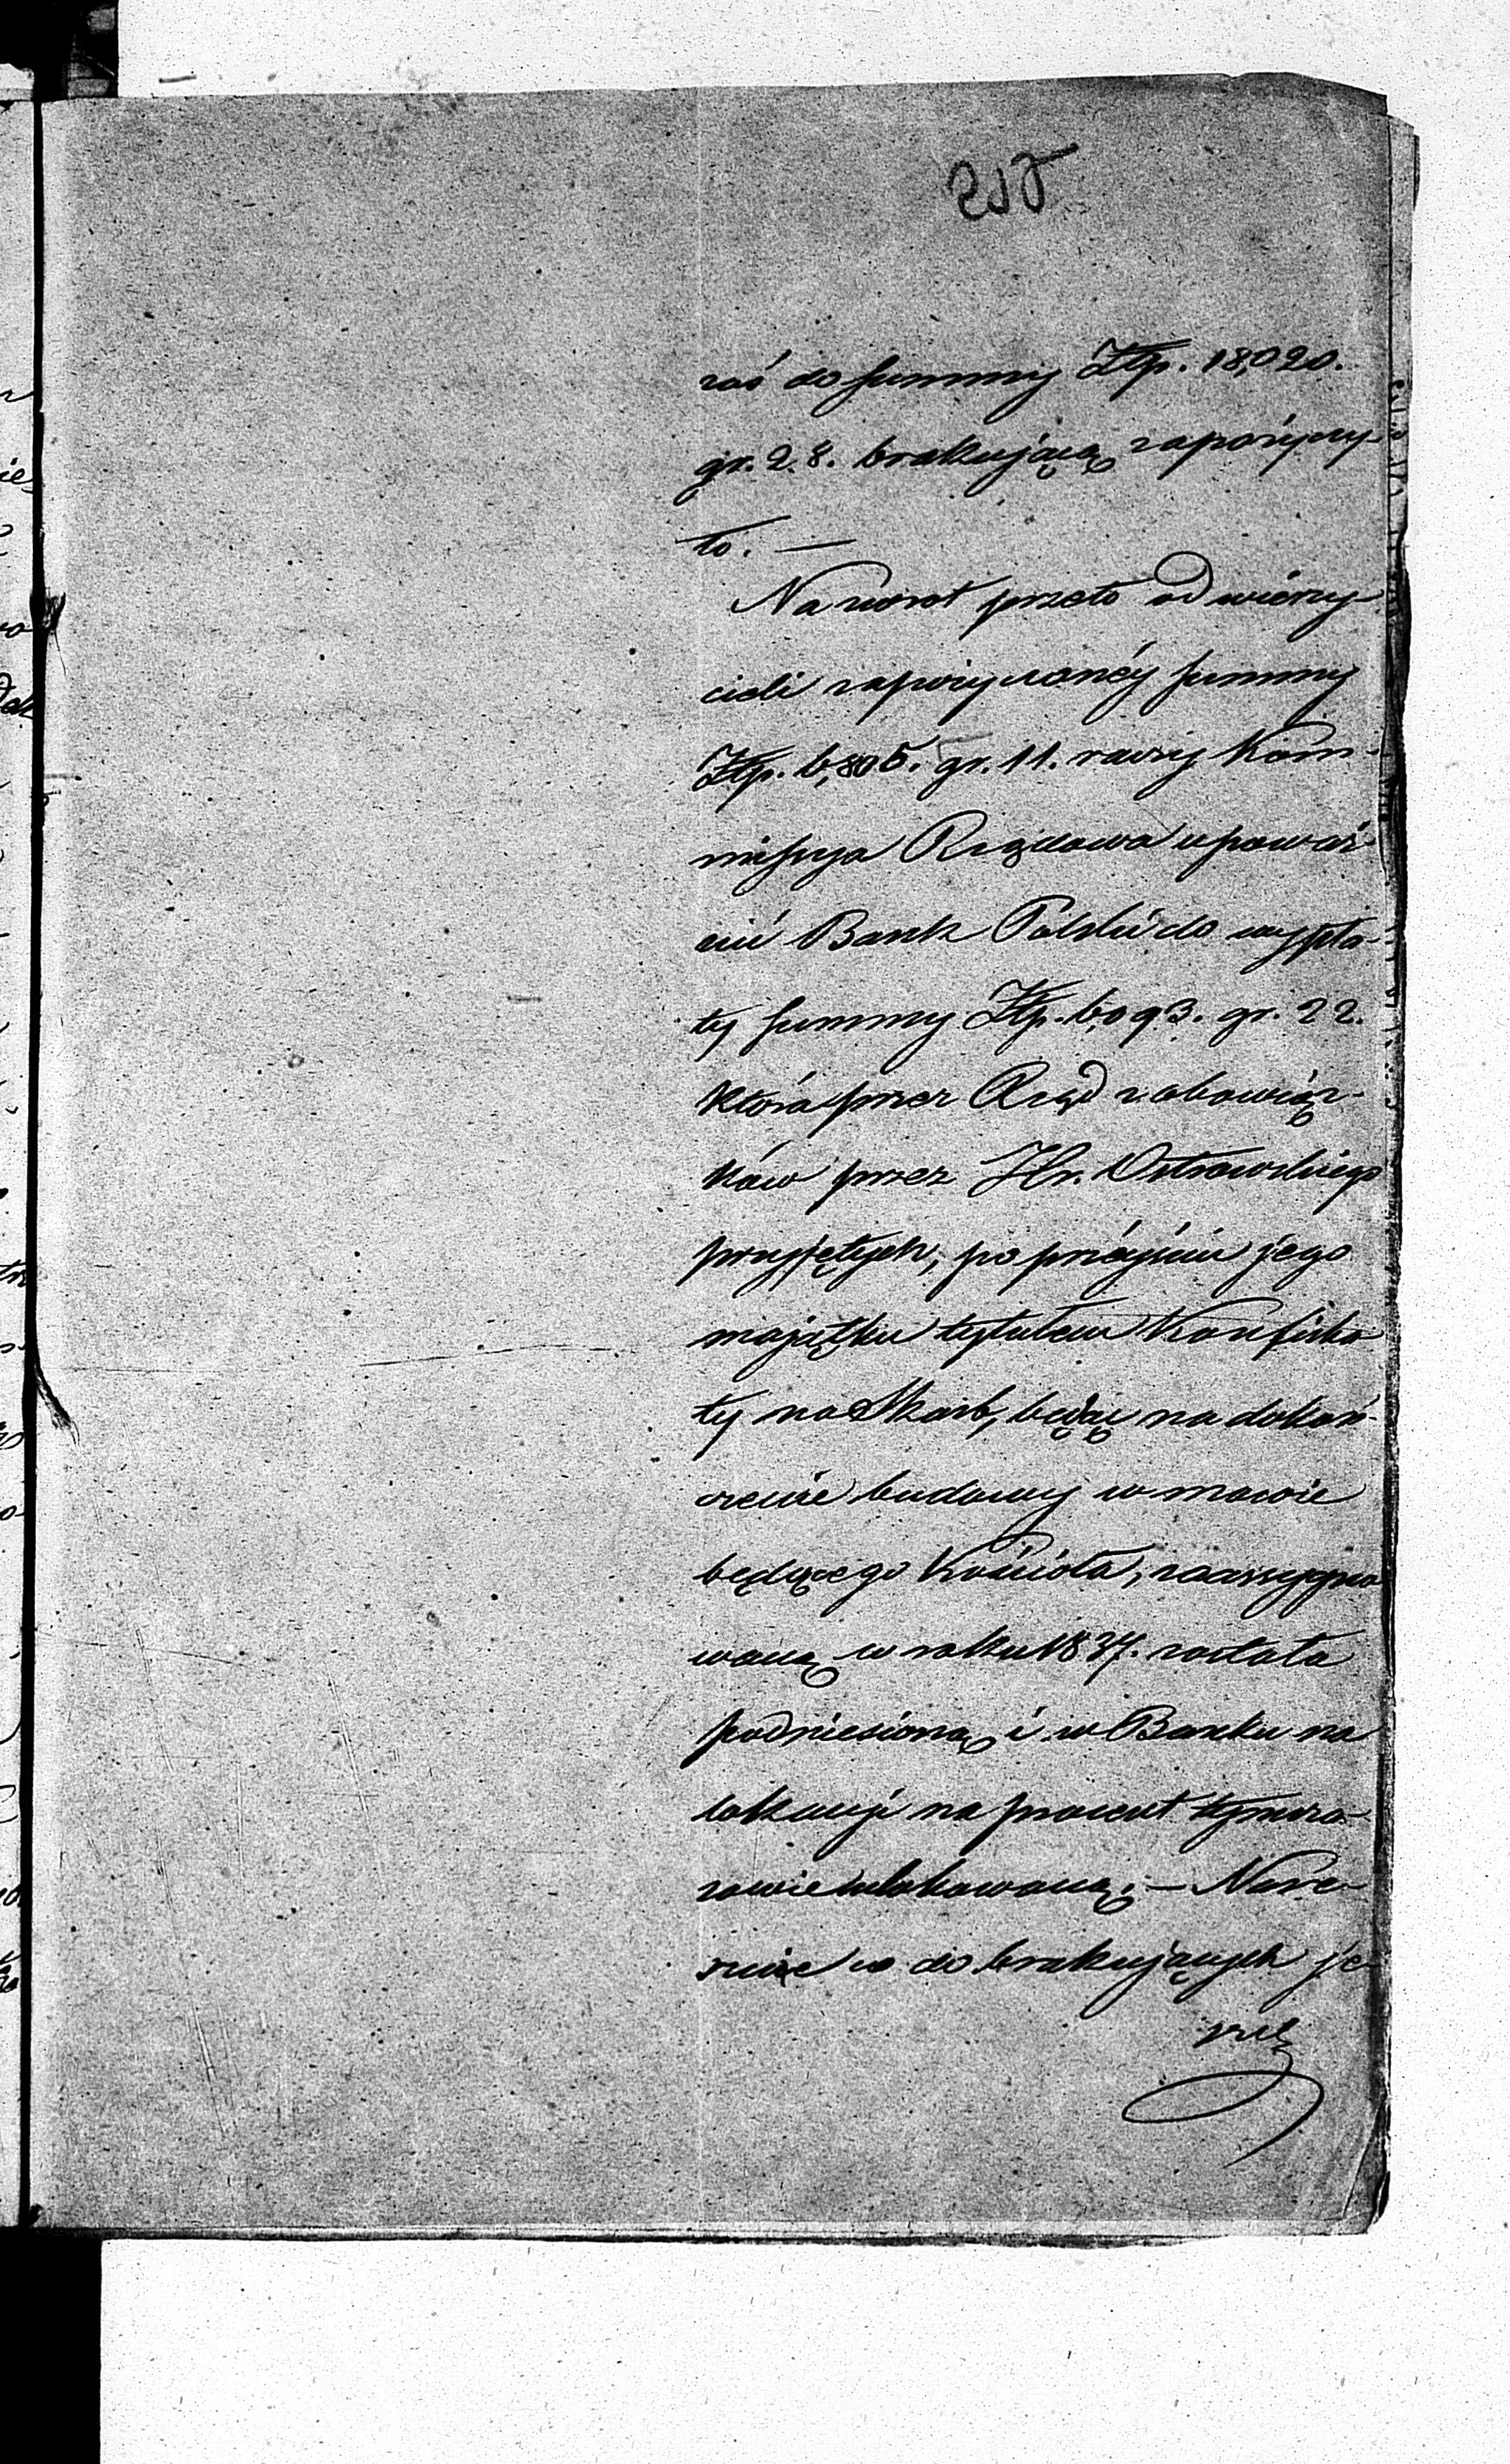 215
zaś do summy Złp. 18,020.
gr. 28. brakującą zapożyczy-
to. —
Na zwrot przeto od wierzy
cieli zapożyczonéy summy
Złp. 6,805. gr. 11. raczy Kom-
missya Rządowa upoważ
nić Bank Polski do wypła-
ty summy Złp. 6,093. gr. 22.
która przez Rząd z obowiąz-
ków przez Hr. Ostrowskiego
przyjętych, po przéyściu jego
majątku tytułem Konfiska
ty na Skarb, będąc na dokoń-
czenie budowy w mowie
będącego Kościoła, zaassygno
waną w roku 1837. została
podniesioną i w Banku na
lokacyi na procent tymcza-
sowie ulokowaną. — Nare-
szcie co do brakujących je-
szcze